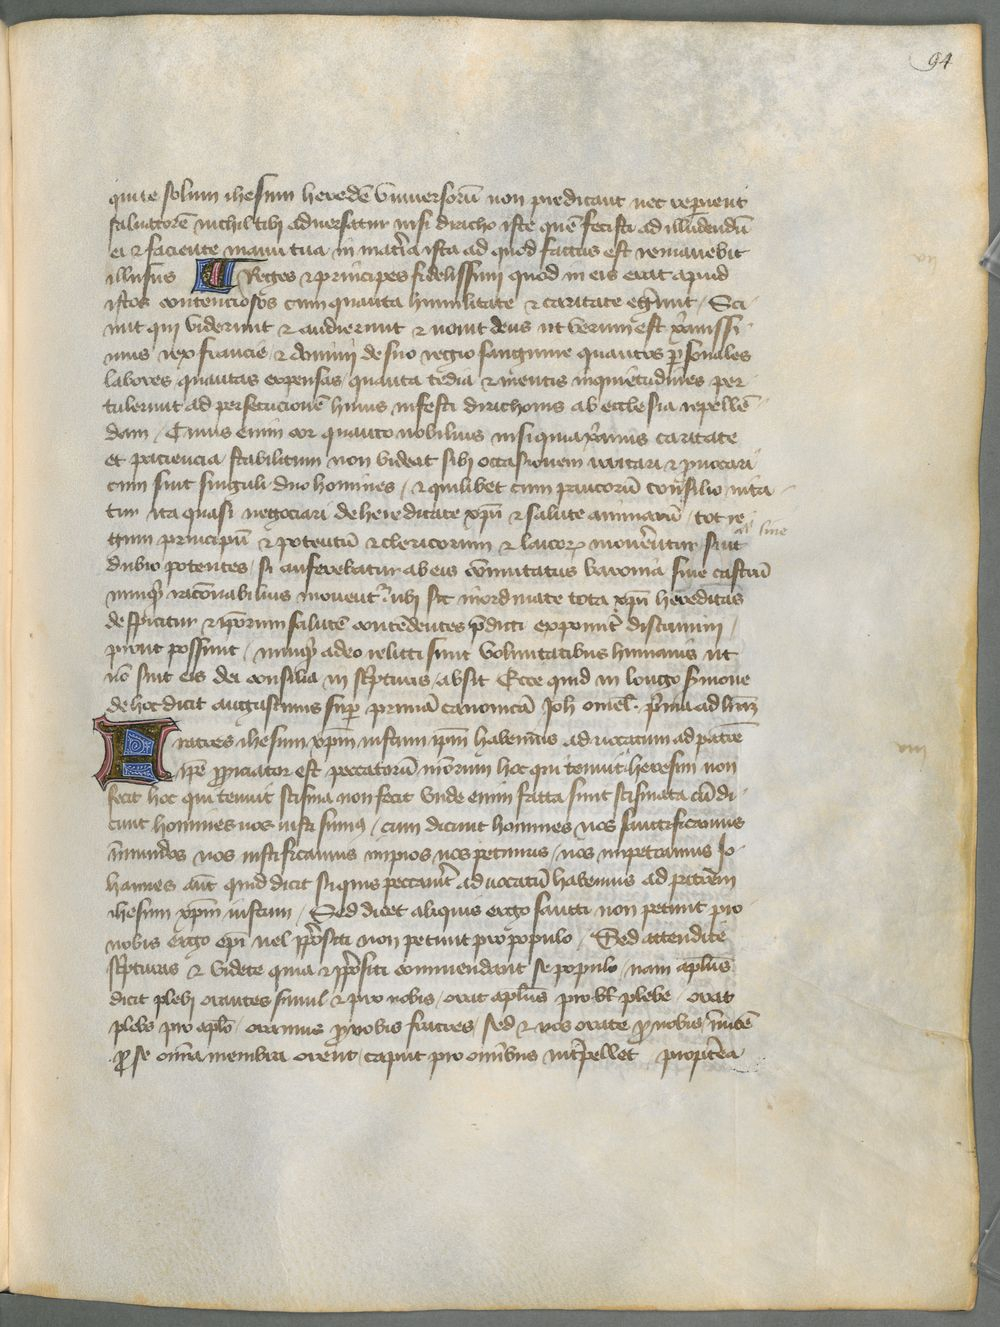 94
qui te solum ihesum heredē vniuersorū non predicant nec reperient
saluatorē nichil tibi aduersatur nisi diracho iste quē fecisti ad illudendū
ei & faciente manu tua in mat̄ia ista ad quod factus est remanebit
illusus Reges & principes fidelissimi quod in eis erat apud
istos contenciosos cum quanta humilitate & caritate eḡunt / Sci
unt qui viderunt & audierunt & nouit deus ut verum est xp̄ianissi
mus rex francie / & domini de suo regio sanguine quantos ꝑsonales
labores quantas expensas / quanta tedia & mentis inquietudines per
tulerunt ad persecucionē huius infesti dirachonis ab ecclesia repellē
dam / Cuius enim cor quanto nobilius nisi quia xp̄ianus caritate
et paciencia stabilitum non videat sibi occasionem irritari & ꝓuocari
cum sint singuli duo homines / & quilibet cum paucorū consilio nita
tur ita quasi negociari de hereditate xp̄i & salute animarū / tot re
al' siue
gum principū & potentū & clericorum & laicoꝝ mouērentur sunt
dubio potentes / si auferebatur ab eis cōmitatus baronia siue castrū
nunqͥd rac̄onabilius mouent̄ ubi sic īordinate tota xp̄i hereditas
despicitur & ip̄orum salutē contēdentes p̄dicti exponūt discrimini /
prout possunt / nunqͥd adeo relicti sunt voluntatibus humanis ut
nō sint eis dei consilia in sc̄pturis / absit Ecce quid in longo sermone
de hoc dicit augustinus suꝑ primā canonicā Joh omel' p̄ma ad lr̄am
Fratres ihesum xp̄m iustum ip̄m habemus aduocatum ad patrē
ip̄e ꝓpiciator est peccatorū nr̄orum hoc qui tenuit heresim non
fecit hoc qui tenuit scisma non fecit vnde enim facta sunt scismata cū di
cunt homines nos iusti sumꝰ / cum dicunt homines nos sanctificamus
īmundos nos iustificamus impios nos petimus / nos impetramus Jo
hannes aūt quid dicit si quis peccauīt aduocatū habemus ad patrem
ihesum xp̄m iustum / Sed dicet aliquis ergo sancti non petunt pro
nobis ergo ep̄i uel p̄positi non petunt pro populo / Sed attendite
sc̄pturas & videte quia & p̄positi commendant se populo / nam apl̄us
dicit plebi orantes simul & pro nobis / orat apl̄us pro plebe / orat
plebs pro apl̄o / oramus ꝓ vobis fratres / sed & vos orate ꝓ nobis / īuicē
ꝓ se om̄ia membra orent / caput pro omībus int̄pellet propt̄ea